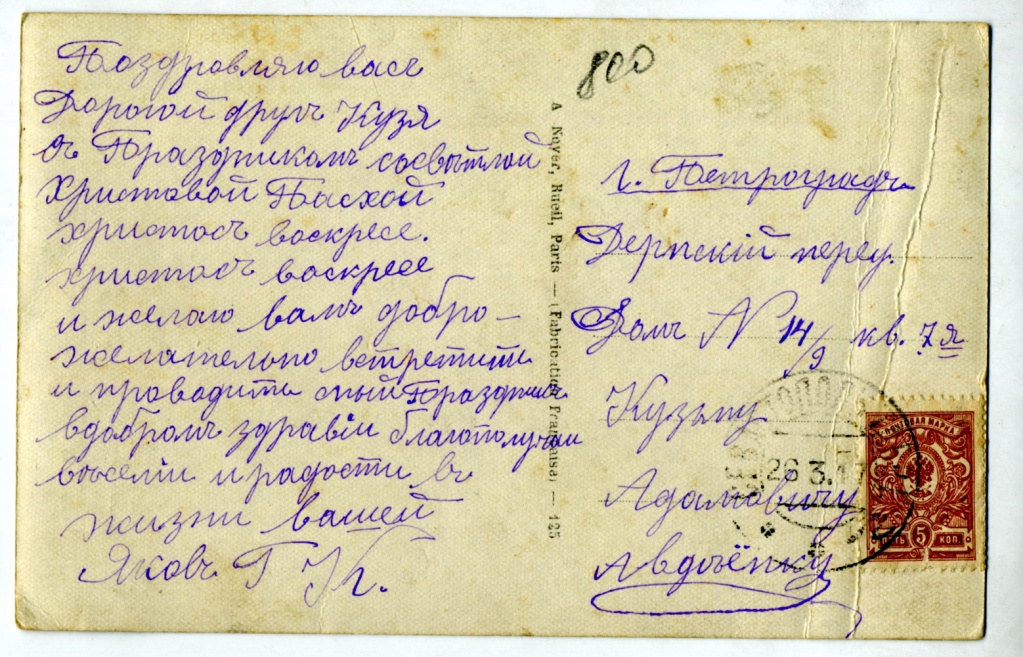 Поздравляю васъ
Дорогой другъ Кузя
съ Праздникомъ сосвѣтлой
Христовой Пасхой
христосъ воскресе.
христосъ воскресе
и желаю вамъ добро-
желательно встретить
и проводить сный Праздникъ
вдобромъ здравіи благополучіи
вѣсели и радости въ
жизни вашей
Яковъ Г К.
800
A Noyer, Rueil, Paris — (Fabrication Française) — 125
г. Петроградъ
Дерпскій переу.
Домъ N 14/9 кв. 7я
Кузьму
Адамовичу
Авдоѣнку
26 3.17
ПОЧТОВАЯ МАРКА
ПЯТЬ 5 КОП.